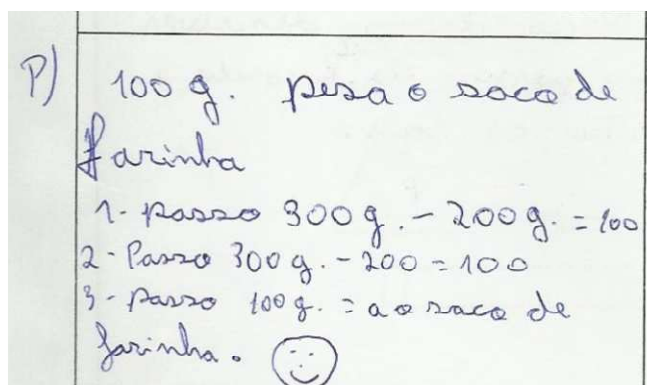 P) 100 g. pesa o saco de
farinha
1- passo 300g. - 200g. = 100
2- Passo 300 g. - 200 = 100
3- passo 100 g. = ao saco de
farinha.